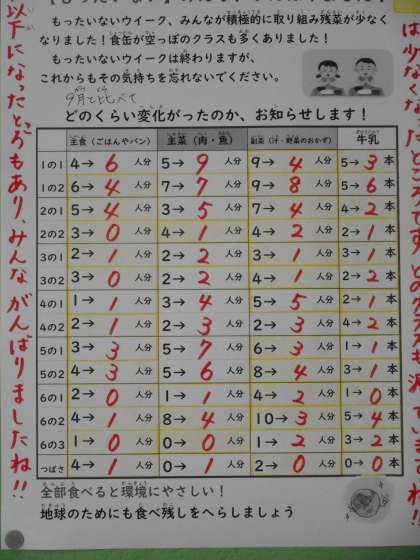 もったいないウイーク、みんなが積極的に取り組み残菜が少なく
なりました！食缶が空っぽのクラスも多くありました！
もったいないウイークは終わりますが、
これからもその気持ちを忘れないでください。
9月と比べて
どのくらい変化があったのか、お知らせします！
主食（ごはんやパン） 主菜（肉・魚） 副菜（汁・野菜のおかず） 牛乳
1の1 4→6人分 5→9人分 9→4人分 5→3本
1の2 6→4人分 7→7人分 9→8人分 5→6本
2の1 5→4人分 3→5人分 7→4人分 4→2本
2の2 3→0人分 4→1人分 4→2人分 2→1本
3の1 2→1人分 2→2人分 3→1人分 1→1本
3の2 3→0人分 2→2人分 4→1人分 2→1本
4の1 1→1人分 3→4人分 5→5人分 2→1本
4の2 2→1人分 2→3人分 2→3人分 4→2本
5の1 3→3人分 5→7人分 6→3人分 1→1本
5の2 4→3人分 5→6人分 8→4人分 3→1本
6の1 2→0人分 1→1人分 4→2人分 1→0本
6の2 4→1人分 8→4人分 10→3人分 5→4本
6の3 1→0人分 0→0人分 1→2人分 3→2本
つばさ 4→1人分 0→1人分 2→0人分 0→0本
全部食べると環境にやさしい！
地球のためにも食べ残しをへらしましょう
以下になったところもあり、みんながんばりましたね!!